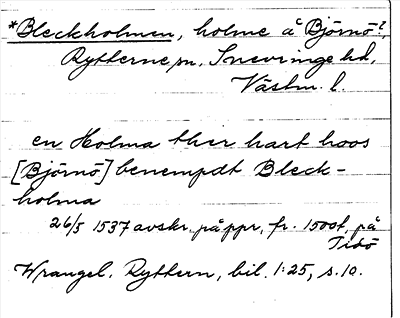 *Bleckholmen, holme å Björnö?,
Rytterne sn, Snevringe hd,
Västm. l.
en Holma ther hart hoos
[Björnö] benempdt Bleck-
holma
26/5 1537 avskr. påppr, fr. 1500t, på
Tidö
Wrangel, Ryttern, bil. 1:25, s. 10.